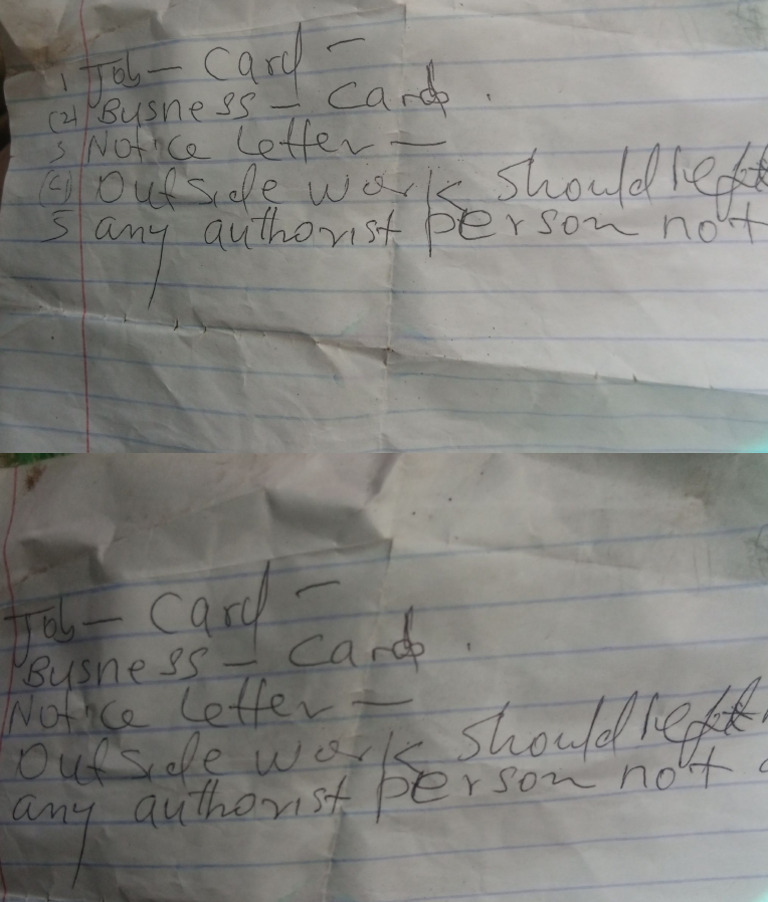 1 Job - Card -
(2) Busness - Card .
3 Notice Letter -
(4) Outside work should left
5 any authorist person not
Job - Card -
Busness - Card .
Notice Letter -
Outside work should left
any authorist person not